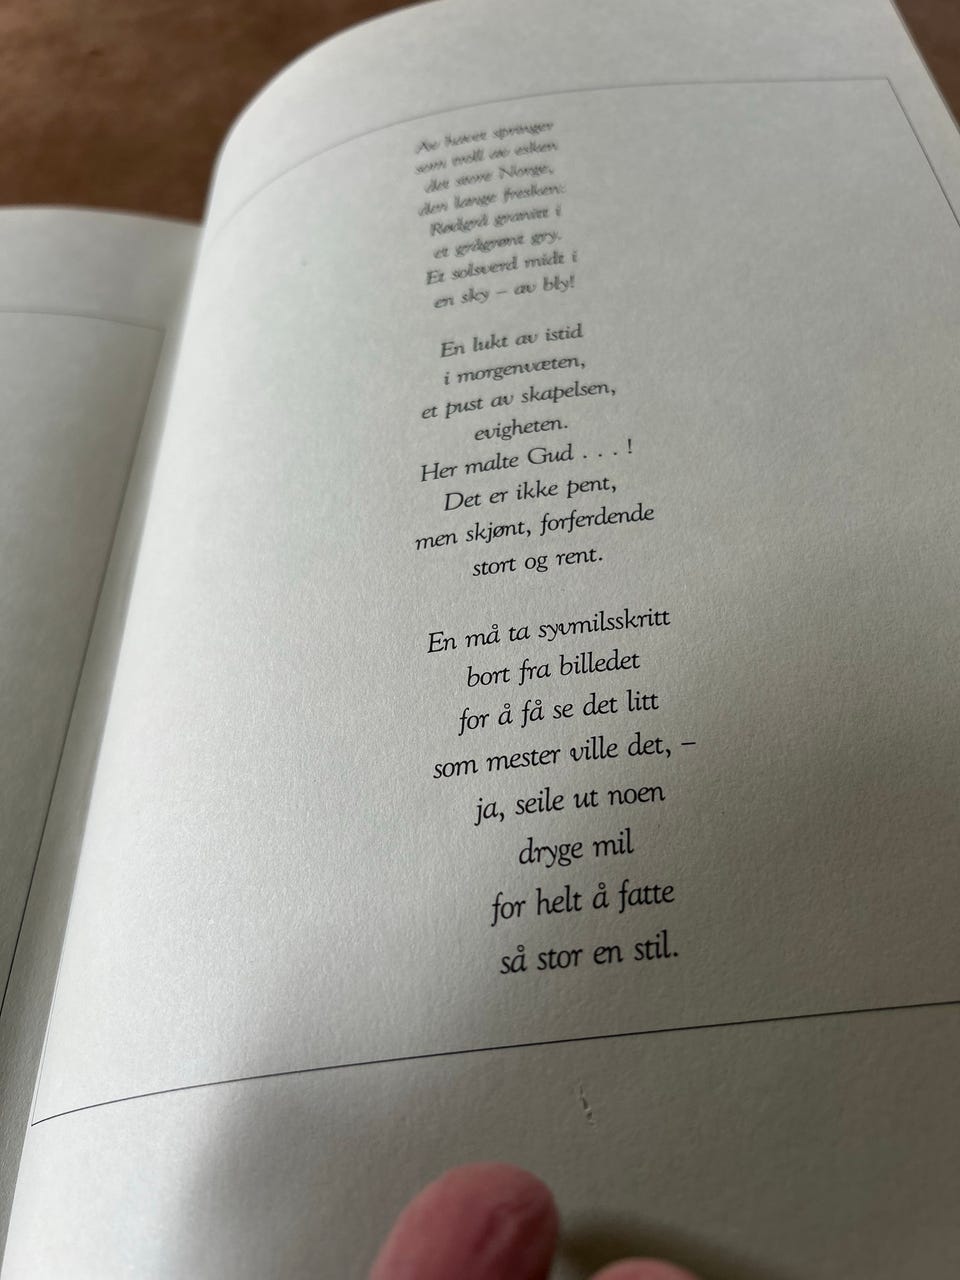 Av havet springer
som troll av esken
det store Norge,
den lange fresken:
Rødgrå granitt i
et grågrønt gry.
Et solsverd midt i
en sky – av bly!
En lukt av istid
i morgenvæten,
et pust av skapelsen,
evigheten.
Her malte Gud . . . !
Det er ikke pent,
men skjønt, forferdende
stort og rent.
En må ta syvmilsskritt
bort fra billedet
for å få se det litt
som mester ville det, –
ja, seile ut noen
dryge mil
for helt å fatte
så stor en stil.